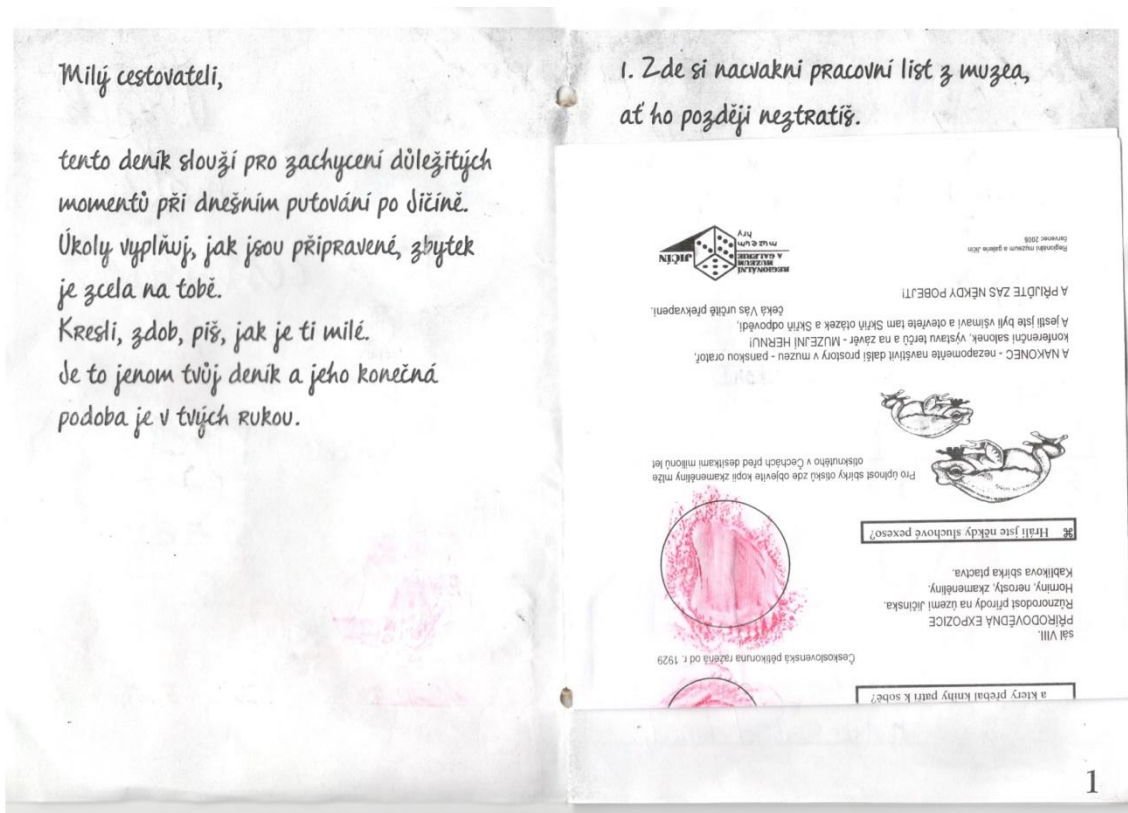 Milý cestovateli,
tento deník slouží pro zachycení důležitých
momentů při dnešním putování po Jičíně.
Úkoly vyplňuj, jak jsou připravené, zbytek
je zcela na tobě.
Kresli, zdob, piš, jak je ti milé.
Je to jenom tvůj deník a jeho konečná
podoba je v tvých rukou.
1. Zde si nacvakni pracovní list z muzea,
ať ho později neztratíš.
a který přebal knihy patří k sobě?
Československá pětikoruna ražená od r. 1929
sál VIII.
PŘÍRODOVĚDNÁ EXPOZICE
Různorodost přírody na území Jičínska.
Horniny, nerosty, zkameněliny.
Kablíkova sbírka ptactva.
⌘ Hráli jste někdy sluchové pexeso?
Pro úplnost sbírky otisků zde objevíte kopii zkameněliny mlže
otisknutého v Čechách před desítkami milionů let
A NAKONEC - nezapomeňte navštívit další prostory v muzeu - panskou oratoř,
konferenční salonek, výstavu terčů a na závěr - MUZEJNÍ HERNU!
A jestli jste byli všímaví a otevřete tam Skříň otázek a Skříň odpovědí,
čeká Vás určitě překvapení.
A PŘIJĎTE ZAS NĚKDY POBEJT!
Regionální muzeum a galerie Jičín
červenec 2005
REGIONÁLNÍ
MUZEUM
A GALERIE
JIČÍN
muzeum
hry
1